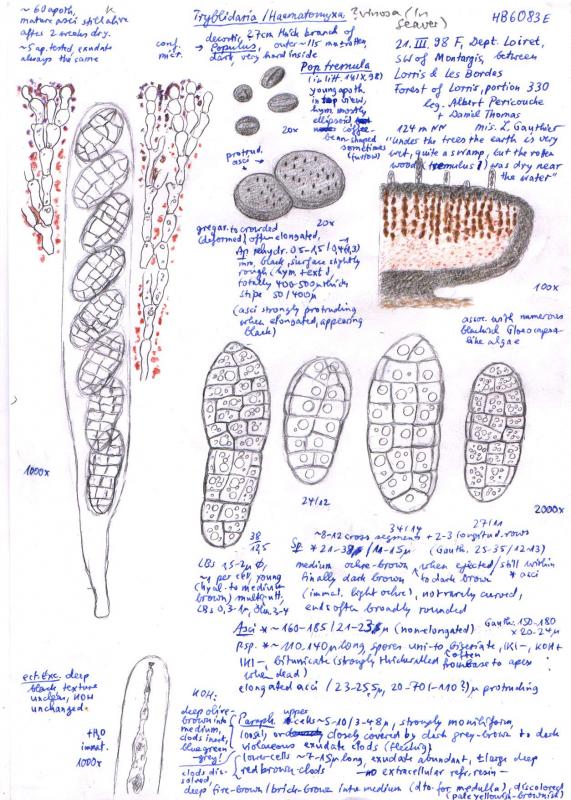 ~ 60 apoth,
mature asci still alive
after 2 weeks dry.
~ 5 ap. tested, exudate
always the same
K
Tryblidaria / Haematomyxa ? vinosa (in Seaver)
HB 6083E
conf. micr.
decortic. 27cm thick branch of
→ Populus, outer ~ 1½ mm rotten,
dark very hard inside
Pop tremula
(in litt. 14.IX.98)
young apoth
in top view,
hym. mostly
ellipsoid
coffee-
bean-shaped
sometimes
(furrow)
20x
protrud.
asci
20x
21. III. 98 F, Dept. Loiret,
SW of Montargis, between
Lorris & les Bordes
Forest of Lorris, portion 330
leg. Albert Pericouche
+ Daniel Thomas
124 m NN mis. L. Gauthier
"under the trees the earth is very
wet, quite a swamp, but the rotten
wood (tremulus!) was dry near
the water"
100x
gregar. to crowded
(deformed) often elongated,
Ap rehydr. 0.5-1.5 / 0.4
mm, black, surface slightly
rough (hym. + ext.),
totally 400-500µ thick
stipe 50 / 400µ
(asci strongly protruding
when elongated, appearing
black)
assoc. with numerous
blackish Gloeocapsa-
like algae
1000x
24/12
34/14
27/11
2000x
38
12,5
~ 8-12 cross segments + 2-3 longitud. rows
Sp. * 21-38 / 11-15µ (Gauth. 25-35 / 12-13)
medium ochre-brown when ejected / still within
finally dark brown to dark brown * asci
(immat. light ochre), not rarely curved,
ends often broadly rounded
LBs 1,5-2µ Ø,
per cell, young
(hyal. to medium
brown) multi
LBs 0,3-1µ,
Asci * ~ 160-185 / 21-23µ (non-elongated) Gauth: 150-180
x 20-24µ
psp. * ~ 110-140µ long, spores uni- to biseriate, IKI-, KOH+
often
IKI-, bitunicate (strongly thickwalled from base to apex
when dead)
elongated asci / 23-25,5µ, 20-70 (-110?)µ protruding
ect. exc. deep
black texture
unclear, KOH
unchanged.
+ H2O
immat.
1000x
KOH:
deep olive-
brown into
medium,
clods inset,
blue green
-grey!
clods dis-
solved
Paraph. upper cells ~ 5-10 / 3-4,8µ, strongly moniliform,
closely covered by dark grey-brown to dark
violaceous exudate clods
lower cells ~ 7-15µ long, exudate abundant, ± large deep
red brown clods — no extracellular refr. resin —
deep fire-brown / brick-brown into medium (dto. for medulla), discolored
(pale yellowish-brownish)